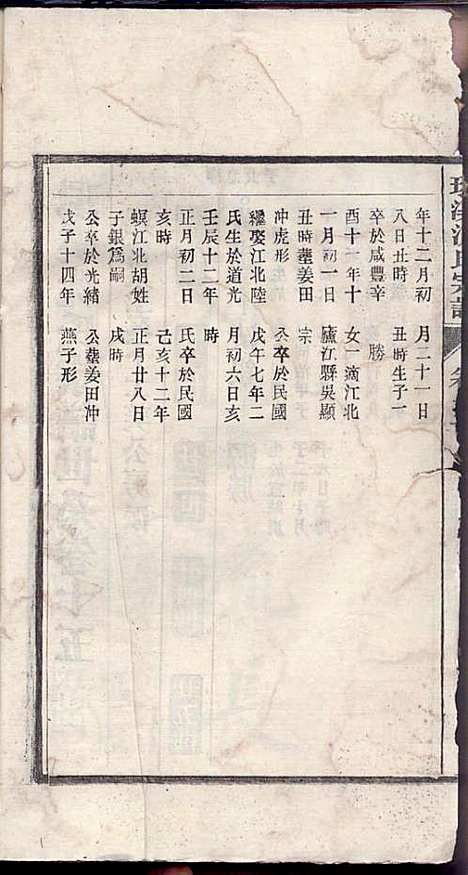 氏宗譜
年十二月初
八日丑時
卒於咸豐辛
酉十一年十
一月初一日
丑時葬姜田
冲虎形
繼娶江北陸
氏生於道光
壬辰十二年
正月初二日
亥時
螟江北胡姓
子銀爲嗣
公卒於光緒
戊子十四年
月二十一日
丑時生子一
勝
女一滴江北
廬江縣吳顯
宗
公卒於民國
戊午七年二
月初六日亥
時
氏卒於民國
己亥十二年
正月廿八日
戌時
公葬姜田冲
燕子形